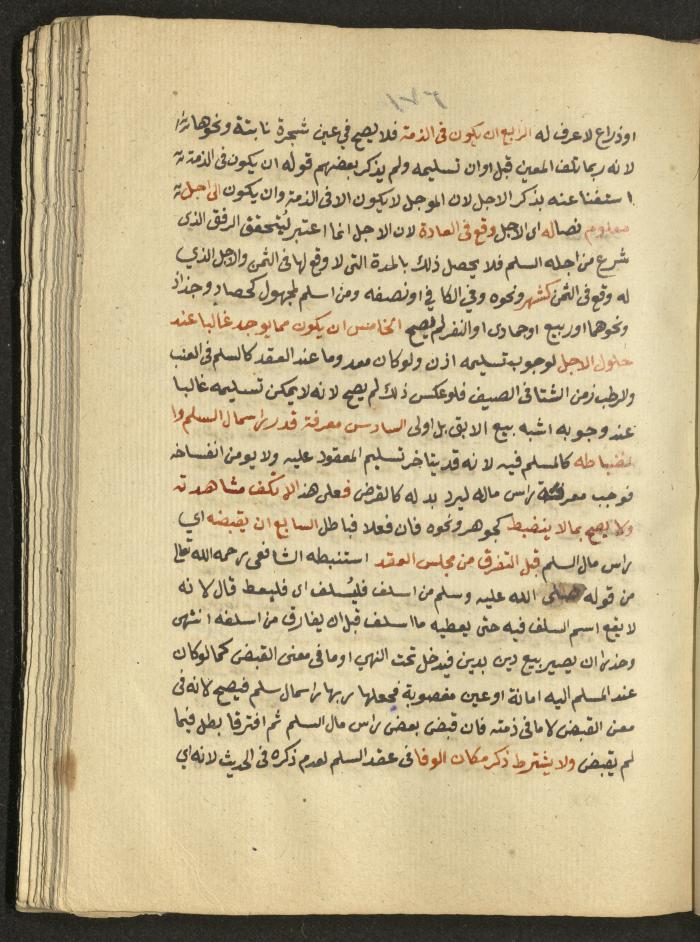 ١٧٦
او ذراع لا عرف له الرابع ان يكون فى الذمة فلا يصح فى عين شجرة نابتة ونحوها
لانه ربما تلف المعين قبل اوان تسليمه ولم يذكر بعضهم قوله ان يكون فى الذمة
استغنا عنه بذكر الاجل لان الموجل لا يكون الا فى الذمة وان يكون الى اجل
معلوم نصا له اى الاجل وقع فى العادة لان الاجل انما اعتبر ليتحقق الرفق الذى
شرع من اجله السلم فلا يحصل ذلك بالمدة التى لا وقع لها فى الثمن والاجل الذي
له وقع فى الثمن كشهر ونحوه وفي الكافي او نصفه ومن اسلم لمجهول كحصاد وجذاذ
ونحوهما او ربيع او جمادى او النفر لم يصح الخامس ان يكون مما يوجد غالبا عند
حلول الاجل لوجوب تسليمه اذن ولو كان معدوما عند العقد كالسلم فى العنب
والرطب زمن الشتا فى الصيف فلو عكس ذلك لم يصح لانه لا يمكن تسليمه غالبا
عند وجوبه اشبه بيع الابق بل اولى السادس معرفة قدر راس مال السلم وا
نضباطه كالمسلم فيه لانه قد يتاخر تسليم المعقود عليه ولا يومن انفساخه
فوجب معرفة راس ماله ليرد بدله كالقرض فعلى هذا لا تكف مشاهدته
ولا يصح بما لا ينضبط كجوهر ونحوه فان فعلا فباطل السابع ان يقبضه اي
راس مال السلم قبل التفرق من مجلس العقد استنبطه الشافعى رحمه الله تعالى
من قوله صلى الله عليه وسلم من اسلف فليسلف اى فليعط قال لانه
لا يقع اسم السلف فيه حتى يعطيه ما اسلف قبل ان يفارق من اسلفه انتهى
وحذرا ان يصير بيع دين بدين فيدخل تحت النهي او ما فى معنى القبض كما لو كان
عند المسلم اليه امانة او عين مغصوبة فجعلها ربها راس مال سلم فيصح لانه فى
معنى القبض لا ما فى ذمته فان قبض بعض راس مال السلم ثم افترقا بطل فيما
لم يقبض ولا يشترط ذكر مكان الوفا فى عقد السلم لعدم ذكره فى الحديث لانه اي